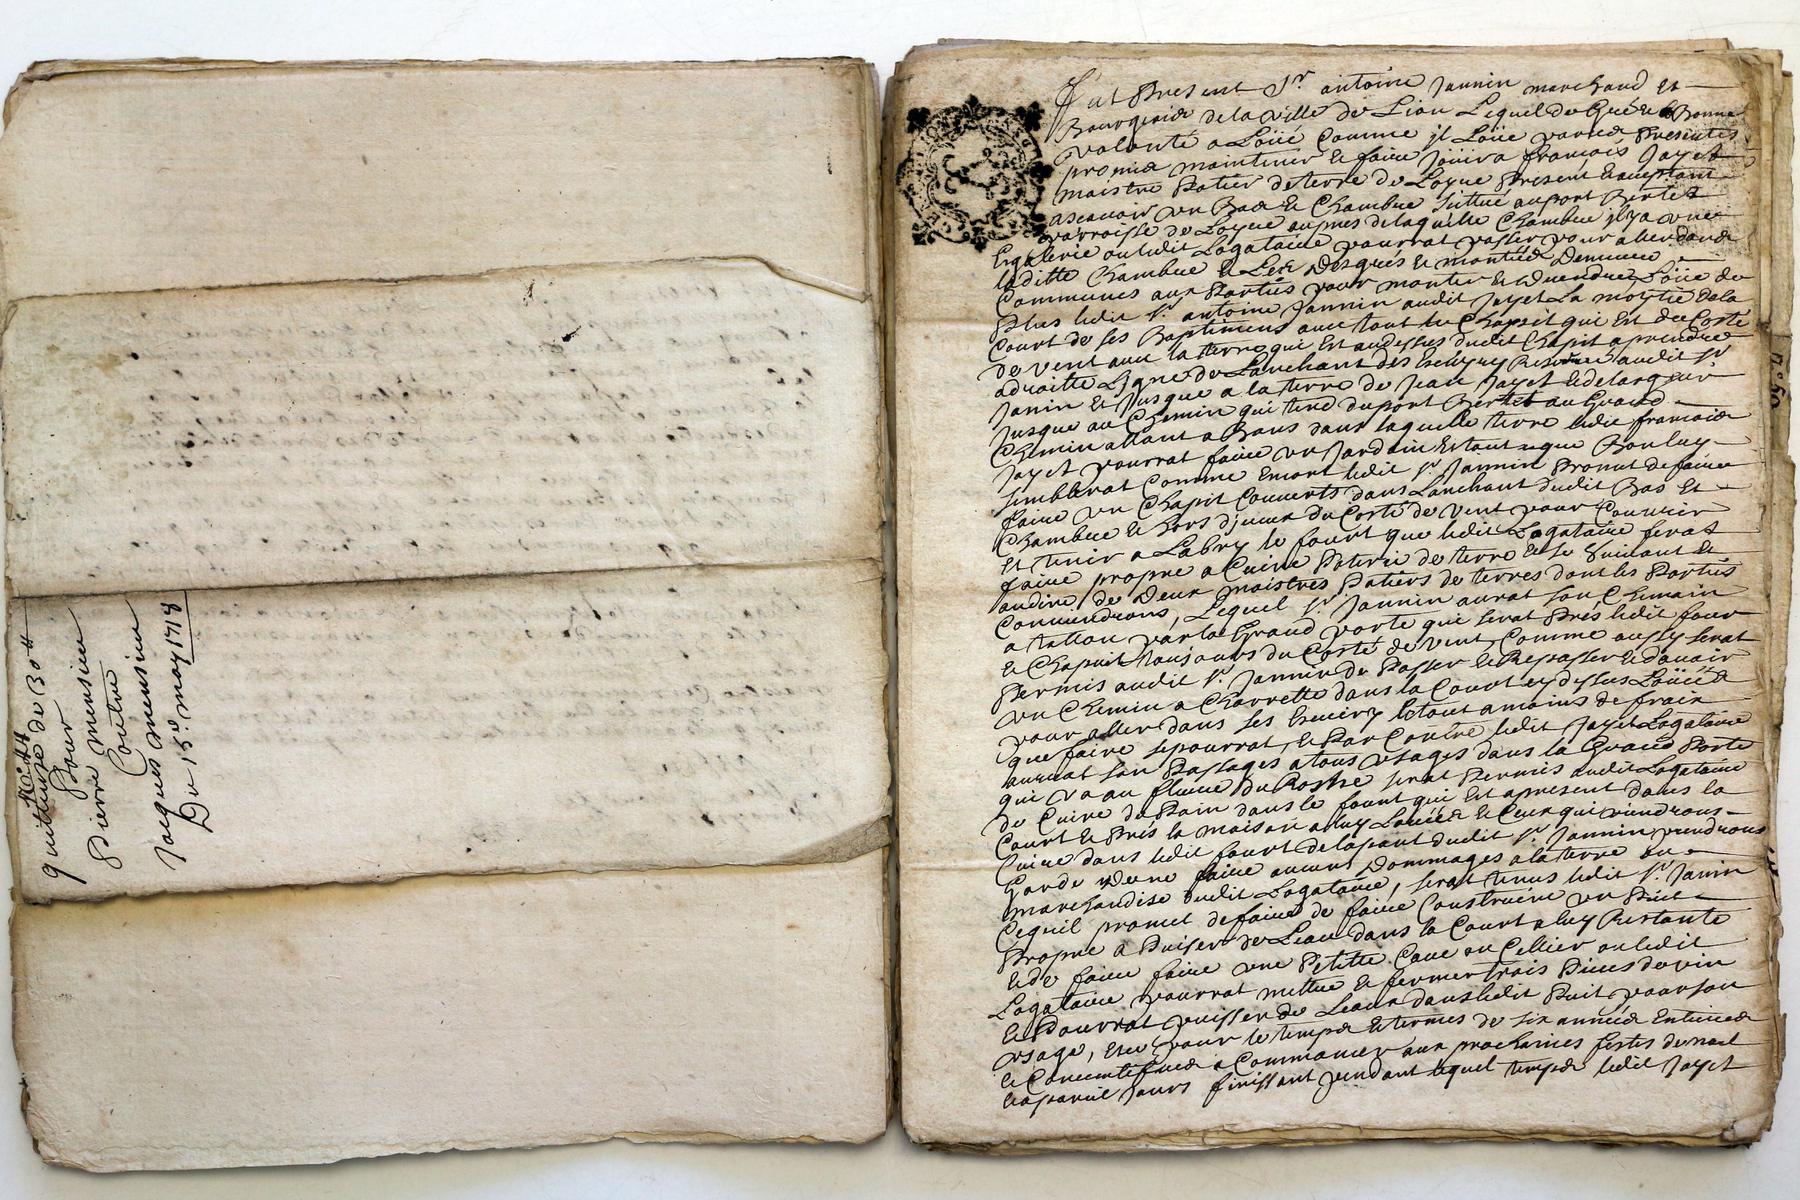 quittance de 30 ₶
Pour
Pierre mensieu
Contre
Jacques mensieu
Du 15e may 1718
Fut Present Sr. antoine Jannin marchand Et
Bourgeois de la ville de Lion Lequel de Gré & Bonne
volonté a Loüé Comme jl Loüe par ces Presentes
promis maintenir & faire Jouir a francois Jayet
maistre Potier de terre de Loyue Present & acceptant
ascavoir un Bas & Chambre scittué au port
parroisse de Loyue aupres de laquelle Chambre jl y a une
Egalerie ou ledit Logataire pourrat passer pour aller dans
laditte Chambre & Les Desgrés & montée Demeure
Communes aux Parties pour monter & dessendre, Loüe de
Plus ledit Sr. antoine Jannin audit Jayet La moytié de la
Court de ses Baptimens avec tout le Chapit qui Est du Costé
de vent avec la terre qui Est au dessus dudit Chapit a prendre
a droitte Ligne de Lanchant des Escuiry Reservé audit Sr
Janin Et Jusque a la terre de Jean Jayet & de largeur
Jusque au Chemin qui tend du port au Grand
Chemin allant a Bans dans laquelle terre ledit francois
Jayet pourrat faire un Jardain Et tout ce que Bon luy
semblerat Comme Encore ledit Sr. Jannin Promet de faire
faire un Chapit Couverts dans Lanchant dudit Bas Et
Chambre & hors d'jceux du Costé de vent pour Couvrir
Et tenir a Labry le fourt que ledit Logataire ferat
faire propre a Cuire Poterie de terre & se suivant &
au dire de Deux maistres Potiers de terres dont les Parties
Conviendrons, Lequel Sr. Jannin aurat son Chemain
a tallon par la Grand porte qui serat Prés ledit four
& Chapuit toujours du Costé de vent, Comme aussy serat
Permis audit Sr. Jannin de Passer & Repasser & davoir
un Chemin a Charrette dans la Court cy dessus Loüée
pour aller dans ses Escuiry le tout a moins de frais
que faire se pourrat, & Par Contre ledit Jayet Logataire
aurrat son Passages a tous usages dans la Grand Porte
qui va au fleuve du Rosne serat Permis audit Logataire
de Cuire du Pain dans le fourt qui Est a present dans la
Court & Prés la maison a luy Loüée & Ceux qui viendrons
Cuire dans ledit fourt de la part dudit Sr. Jannin prendrons
Garde de ne faire aucuns Dommages a la terre ou
marchandise dudit Logataire, serat tenus ledit Sr. Janin
Ce quil promet de faire de faire Construire un Puit
Propre a Puiser de Leau dans la Court a luy Restante
& de faire faire une Petitte Cave ou Cellier ou ledit
Logataire pourrat mettre & fermer trois Pieces de vin
& Pourrat puisser de Leaux dans ledit Puit pour son
usage, & ce pour le temps & termes de six année Entiere
& Consecutifues a Commancer aux prochaines festes de noel
& a pareil Jours finissant pendant lequel temps ledit Jayet